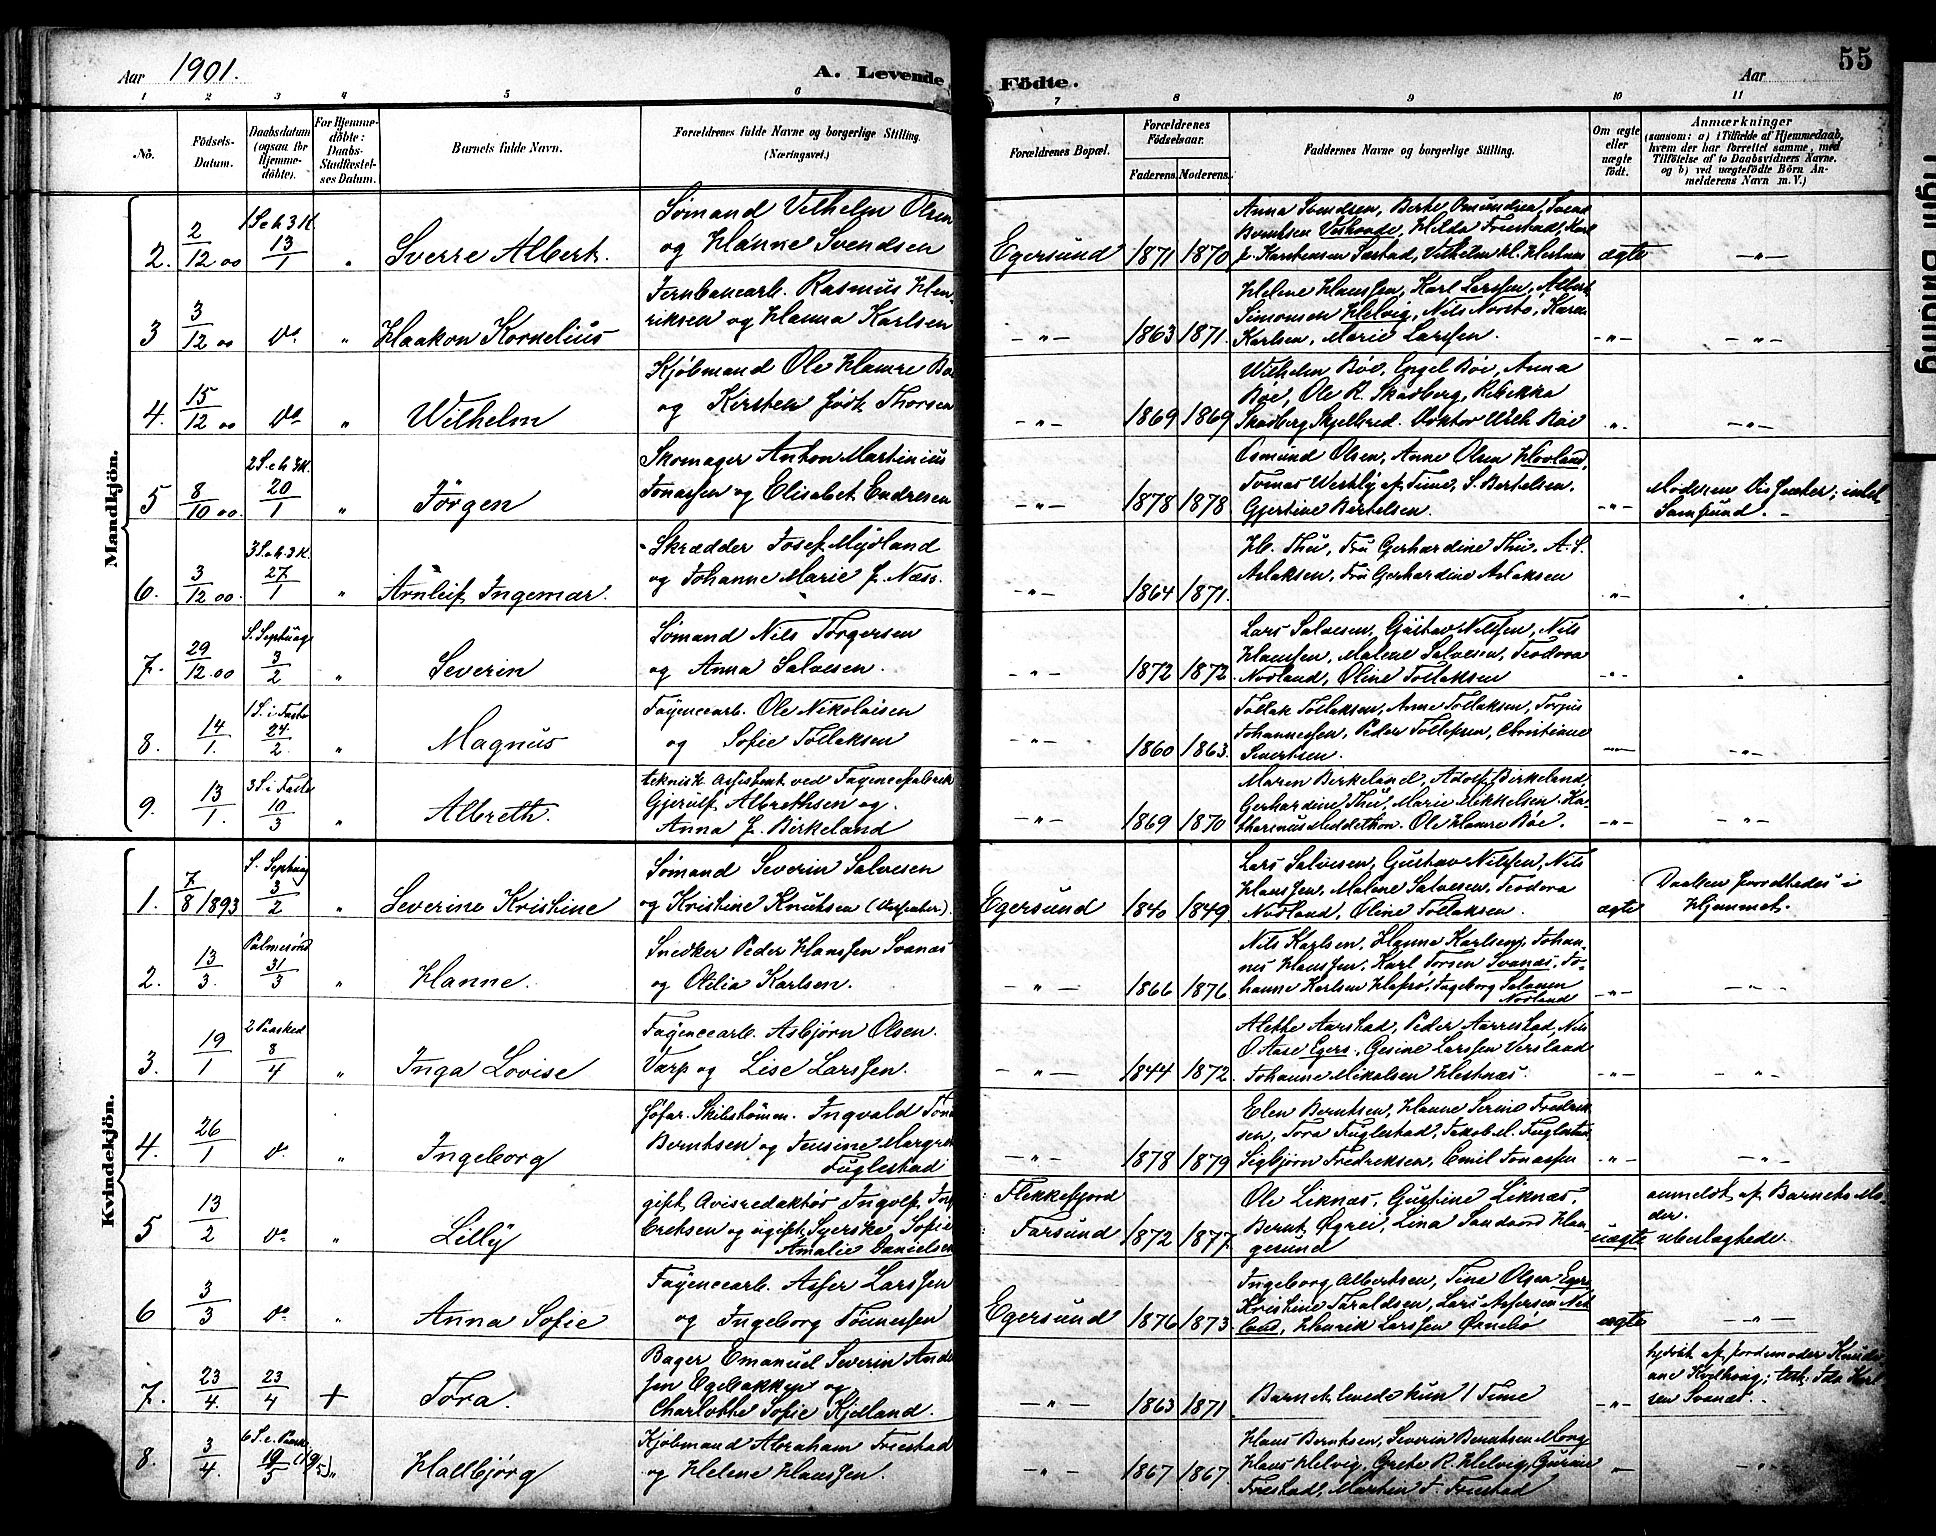 Aar 1901.
A. Levende Fødte.
Aar
55
1 2 3 4 5 6 7 8 9 10 11
No.
Fødsels-Datum.
Daabsdatum (ogsaa for Hjemme-døbte).
For Hjemme-døbte: Daabs-Stadfæstel-ses Datum.
Barnets fulde Navn.
Forældrenes fulde Navne og borgerlige Stilling. (Næringsvei.)
Forældrenes Bopæl.
Forældrenes Fødselsaar.
Faderens. Moderens.
Faddernes Navne og borgerlige Stilling.
Om ægte eller uægte født.
Anmærkninger
(saasom: a) i Tilfælde af Hjemmedaab, hvem der har forrettet samme, med Tilføielse af to Daabsvidners Navne. og b) ved uægtefødte Børn Anmelderens Navn m. V.)
Mandkjön.
2. 2/12 00 1 S. e. h. 3 K. 13/1 " Sverre Albert.
Sømand Vilhelm Olsen
og Hanne Svendsen
Egersund 1871 1870
Anna Svendsen, Berte Omundsen, Svend
Berntsen Veshovde, Hilda Friestad, Karl
J. Karstensen Sæstad, Vilhelm Kl. Hestnes
ægte —"—
3 3/12 00 do " Haakon Kornelius
Jernbanearb. Rasmus Hen-
riksen og Hanna Karlsen
—"— 1863 1871.
Helene Hanssen, Karl Larssen, Albert
Simonsen Helvig, Nils Norstø, Karen
Karlsen, Marie Larssen.
—"— —"—
4. 15/12 00 do " Wilhelm
Kjøbmand Ole Hamre Bøe
og Kirsten født Thorsen
—"— 1869 1869
Wilhelm Bøe, Engel Bøe, Anna
Bøe, Ole R. Skadberg, Rebekka
Skadberg Skjelbred. Doktor Ulrk Bøe
" —"—
5 8/10 00. 2 S. e. h. 3 K. 20/1 " Jörgen
Skomager Anton Martinius
Jonassen og Elisabet Endresen
—"— 1878 1878
Osmund Olsen, Anne Olsen Hovland,
Tomas Werkly af Time, S. Bertelsen,
Gjertine Bertelsen.
—"— Moderen Dissenter; intet
Samfund. —
6. 3/12 00. 3 S. e. h. 3 K. 27/1 " Arnleif Ingemar.
Skrædder Josef Mydland
og Johanne Marie f. Næss.
—"— 1864 1871.
H. Thu, Fru Gerhardine Thu, A. S.
Aslaksen, Fru Gerhardine Aslaksen
—"— "
7. 29/12 00 S. Septuag. 3/2 " Severin
Sømand Nils Torgersen
og Anna Salvesen.
—"— 1872 1872
Lars Salvesen, Gustav Nilssen, Nils
Hanssen, Malene Salvesen, Teodora
Nodland, Oline Tollaksen
—"— "
8. 14/1. 1 S. i Faste 24/2. " Magnus
Fayencearb. Ole Nikolaisen
og Sofie Tollaksen
—"— 1860 1863.
Tollak Tollaksen, Anne Tollaksen, Torjus
Johannessen, Peder Tollefsen, Christiane
Sivertsen.
—"— —"—
9. 13/1. 3 S. i Faste 10/3 " Albreth.
teknisk Assistent ved Fayencefabrik
Gjerulf Albrethsen og
Anna f. Birkeland
—"— 1869 1870
Maren Birkeland, Adolf Birkeland,
Gerhardine Thu, Marie Mikkelsen, Ka-
tharinus Meddelthon. Ole Hamre Bøe.
—"— —"—
Kvindekjön.
1. 7/8 1893 S. Septuag 3/2 " Severine Kristine
Sømand Severin Salvesen
og Kristine Knutsen (Dissenter).
Egersund 1840 1849
Lars Salvesen, Gustav Nilssen, Nils
Hanssen, Malene Salvesen, Teodora
Nodland, Oline Tollaksen.
ægte Daaben forrettedes i
Hjemmet.
2. 13/3. Palmesønd 31/3 " Hanne.
Snedker Peder Hanssen Svanæs
og Otilia Karlsen.
—"— 1866 1876
Nils Karlsen, Hanne Karlsen, Johan-
nes Hanssen, Karl Torsen Svanæs, Jo-
hanne Karlsen Hafsø, Ingeborg Salomon
Nodland
—"— —"—
3. 19/1 2 Paasked 8/4 " Inga Lovise
Fayencearb. Asbjørn Olsen.
Varp og Lise Larssen.
—"— 1844 1872.
Alette Aarstad, Peder Aarrestad, Nils
O Aase Egers., Gesine Larssen Versland
Johanne Mikalsen Hestnæs.
—"— —"—
4. 26/1 do. " Ingeborg
Søfar. Skilstömm. Ingvald Tønn
Berntsen og Jensine Margret
Fuglestad
—"— 1878 1879
Elen Berntsen, Hanne Serine Fredrik-
sen, Tora Fuglestad, Jakob M. Fuglestad,
Sigbjørn Fredriksen, Emil Jonassen
—"— —"—
5 13/2 do " Lilly
gift Avisredaktør Ingolf
Eriksen og ugift Syerske Sofie
Amalie Danielsen
Flekkefjord
Farsund 1872 1877.
Ole Liknæs, Gustine Liknæs,
Bernt Øgrei, Lina Sandvord Hau-
gesund
uægte anmeldt af Barnets Mo-
der.
ubeslægtede.
6 3/3 do " Anna Sofie
Fayencearb. Asser Larssen
og Ingeborg Tönnessen
Egersund 1876 1873
Ingeborg Albertsen, Tina Olsen Egers
Kristine Taraldsen, Lars Assersen Net-
land, Henrik Larssen Ørnebø
ægte —"—
7. 23/4. 23/4 + Tora.
Bager Emanuel Severin Ander
sen Egebakken og
Charlotte Sofie Kjelland.
—"— 1863 1871.
Barnet levede kun 1 Time
—"— hjdøbt af Jordemoder Knudi-
ane Kvelhaug; test. Ida Karl-
sen Svanæs.
8. 3/4. 6 S. e. Paask. 19/5 (19/5) " Hallbjørg
Kjøbmand Abraham Friestad
og Helene Hanssen.
—"— 1867 1867.
Hans Berntsen, Severin Berntsen Mong
Hans Helvig, Grete R. Helvig, Gurine
Friestad, Marthen T. Friestad
" —"—